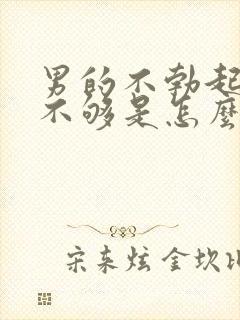 男的不勃起
不够是怎麽
宋来炫 金坎比